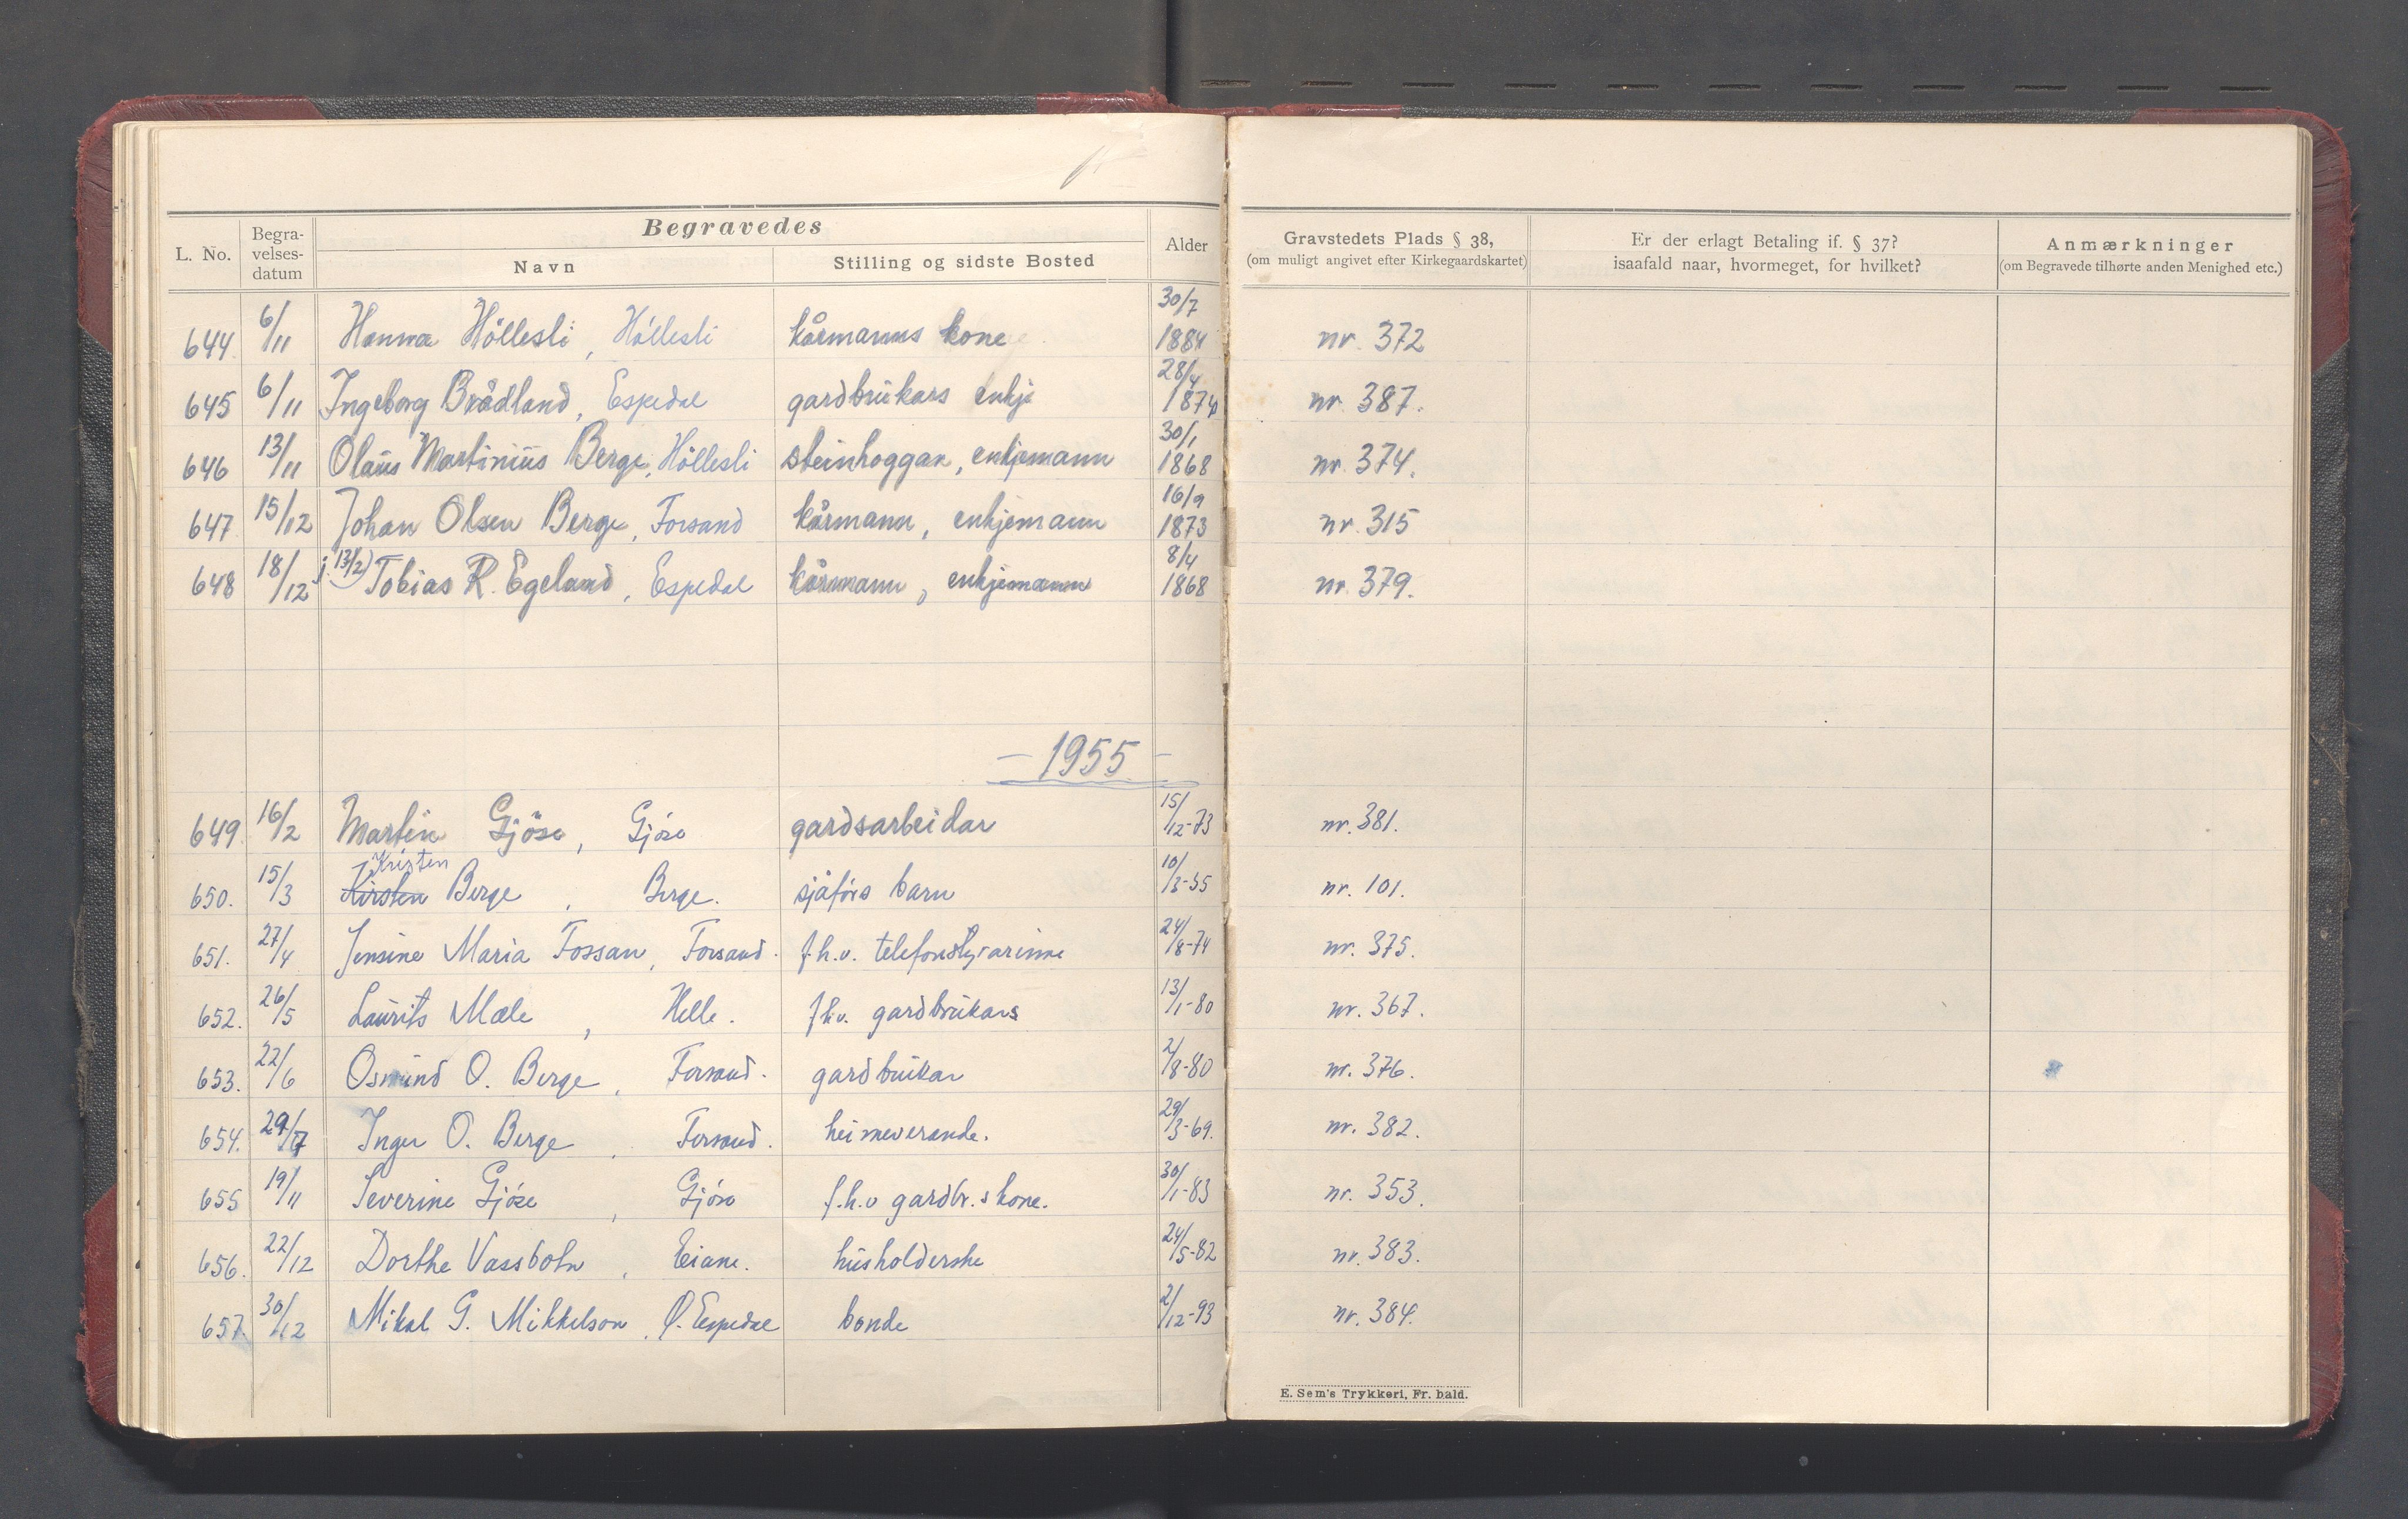 Begravedes
L. No. Begra-velses-datum Navn Stilling og sidste Bosted Alder Gravstedets Plads § 38, (om muligt angivet efter Kirkegaardskartet) Er der erlagt Betaling if. § 37? isaafald naar, hvormeget, for hvilket? Anmærkninger (om Begravede tilhørte anden Menighed etc.)
644 6/11 Hanna Höllesli, Höllesli kårmanns kone 30/7 1884 nr. 372
645 6/11 Ingeborg Brådland, Espedal gardbrukars enkje 28/4 1874 nr. 387.
646 13/11 Olaus Martinius Berge, Höllesli steinhoggar, enkjemann 30/1 1868 nr. 374.
647 15/12 Johan Olsen Berge, Forsand kårmann, enkjemann 16/9 1873 nr. 315
648 18/12 j. 13/2) Tobias R. Egeland, Espedal kårmann, enkjemann 8/4 1868 nr. 379.
- 1955 -
649 16/2 Martin Gjöse, Gjöse gardsarbeidar 15/12-73 nr. 381.
Kristen
650. 15/3 Kirsten Berge, Berge. sjåførs barn 10/3-55 nr. 101.
651. 27/4 Jensine Maria Fossan, Forsand. f.h.v. telefonstyrarinne 24/8-74 nr. 375.
652. 26/5 Laurits Mæle, Helle. f.h.v. gardbrukars 13/1-80 nr. 367.
653. 22/6 Osmund O. Berge, Forsand. gardbrukar 2/8-80 nr. 376.
654. 29/7 Inger O. Berge, Forsand. heimeverande. 29/3-69. nr. 382.
655 19/11 Severine Gjöse, Gjöse f.h.v gardbr.s kone. 30/1-83 nr. 353.
656. 22/12 Dorthe Vassbotn, Eiane. husholderske 24/5-82 nr. 383.
657. 30/12 Mikal G. Mikkelson, Ø. Espedal bonde 2/12-93 nr. 384.
E. Sem's Trykkeri, Fr.hald.